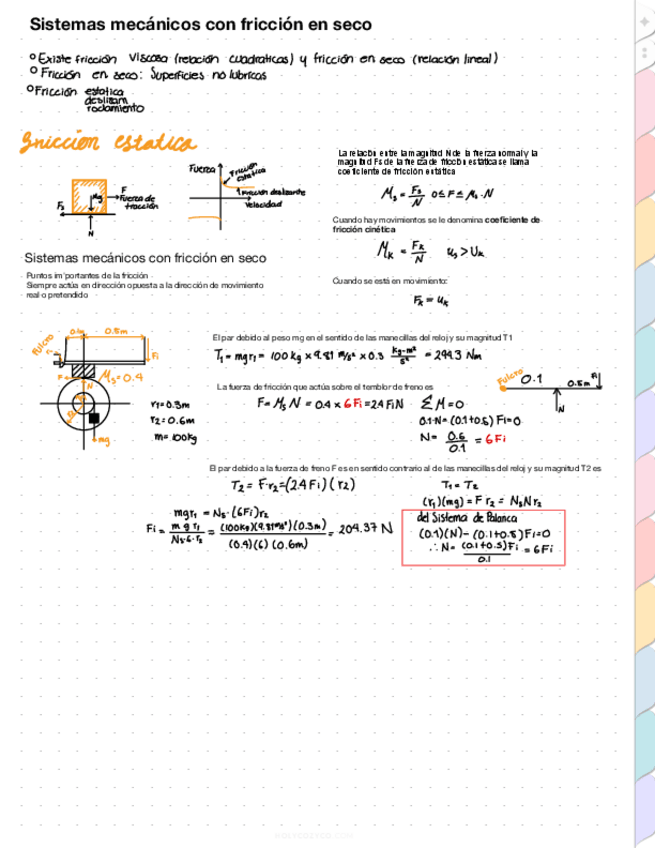 Sistemas mecánicos con fricción en seco
Existe fricción viscosa (relación cuadraticas) y fricción en seco (relación lineal)
Fricción en seco: Superficies no lubricas
Fricción estatica
deslizam
rodamiento
friccion estatica
Mg
F
Fuerza de
tracción
Fs
N
Fuerza
Fricción
estatica
Fricción deslizante
Velocidad
La relación entre la magnitud N de la fuerza normal y la
magnitud Fs de la fuerza de fricción estática se llama
coeficiente de fricción estática
Ms = Fs/N 0≤F≤Ms·N
Cuando hay movimientos se le denomina coeficiente de
fricción cinética
Mk = Fk/N us>Uk
Sistemas mecánicos con fricción en seco
Puntos importantes de la fricción
Siempre actúa en dirección opuesta a la dirección de movimiento
real o pretendido
Cuando se está en movimiento:
Fk = uk
Fulcro
0.1m
0.5m
Fi
F
N
Ms=0.4
mg
r1=0.3m
r2=0.6m
m=100kg
El par debido al peso mg en el sentido de las manecillas del reloj y su magnitud T1
T1 = mgr1 = 100kg × 9.81 m/s² × 0.3 kg-m²/s² = 294.3 Nm
La fuerza de fricción que actúa sobre el tambor de freno es
F = Ms N = 0.4 × 6Fi = 2.4 Fi N
ΣM=0
0.1·N-(0.1+0.5)Fi=0
N= 0.6/0.1 = 6Fi
Fulcro
0.1
0.5m
Fi
N
El par debido a la fuerza de freno F es en sentido contrario al de las manecillas del reloj y su magnitud T2 es
T2 = F·r2=(2.4Fi)(r2)
T1 = T2
(r1)(mg) = F r2 = NsNr2
mgr1 = Ns·(6Fi)r2
Fi = mgr1/Ns·6·r2 = (100kg)(9.81m/s²)(0.3m)/(0.4)(6)(0.6m) = 204.37 N
del Sistema de Palanca
(0.1)(N)-(0.1+0.5)Fi=0
∴ N= (0.1+0.5)Fi/0.1 = 6Fi